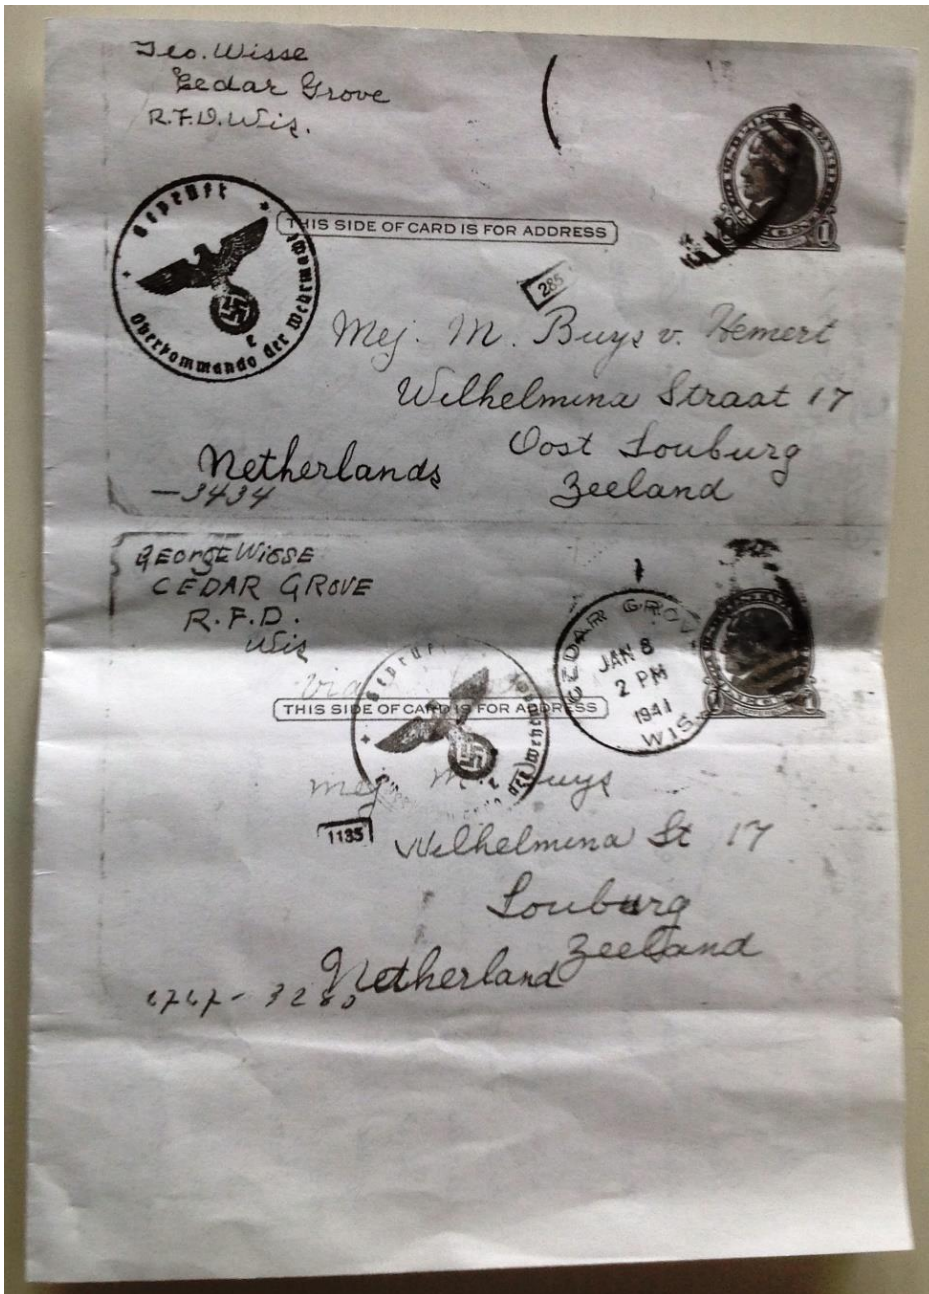 Geo. Wisse
Cedar Grove
R.F.D. Wis.
Geprüft
Oberkommando der Wehrmacht
e
THIS SIDE OF CARD IS FOR ADDRESS
1
285
Mej. M. Buys v. Hemert
Wilhelmina Straat 17
Oost Souburg
Zeeland
Netherlands
-3434
GEORGE WISSE
CEDAR GROVE
R.F.D.
Wis
CEDAR GROVE
JAN 8
2 PM
1941
WIS.
1
Via
THIS SIDE OF CARD IS FOR ADDRESS
Geprüft
der Wehrm
e
Mej M. Buys
1135
Wilhelmina St 17
Souburg
Zeeland
Netherland